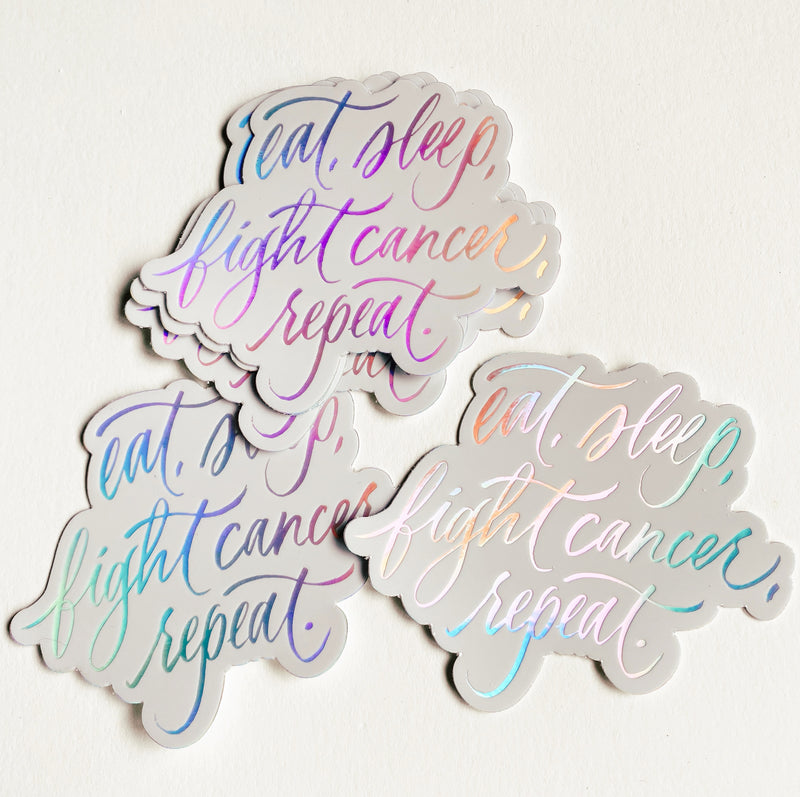 eat, sleep,
fight cancer,
repeat.
eat, sleep,
fight cancer
repeat.
eat, sleep,
fight cancer,
repeat.